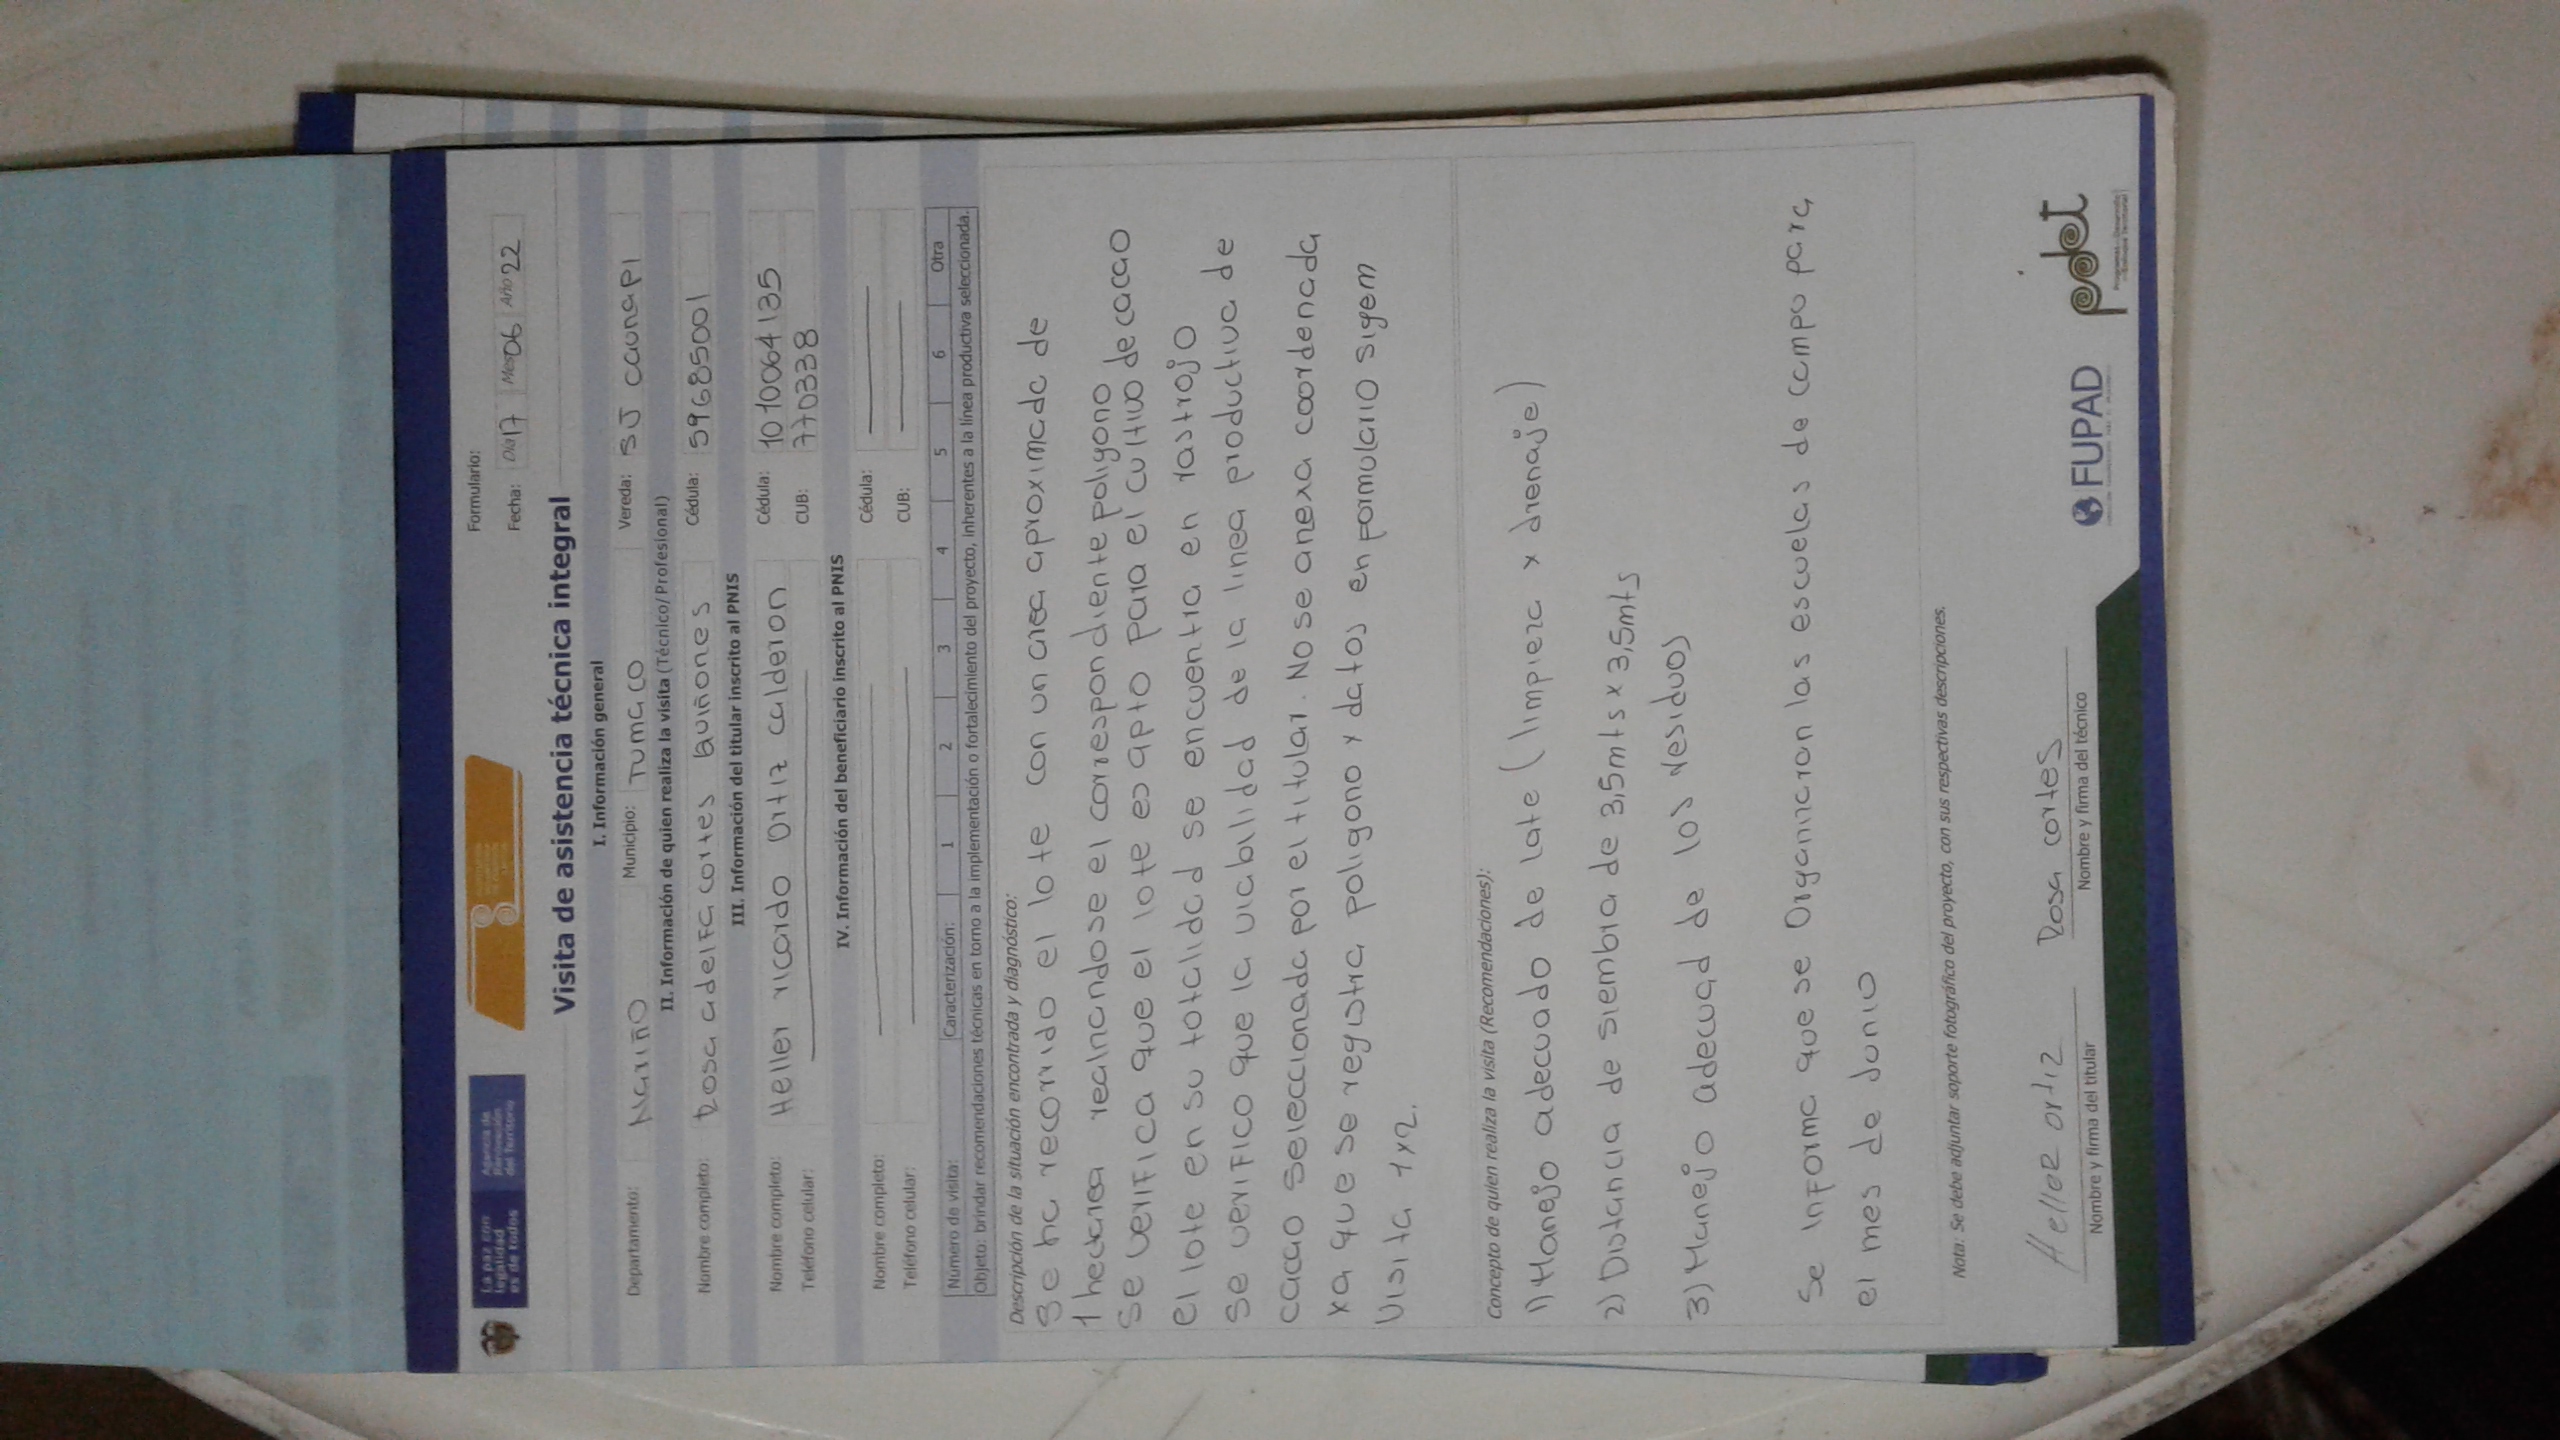 La paz con legalidad es de todos
Agencia de Renovación del Territorio
Formulario:
Fecha: Día 17 Mes 06 Año 22
Visita de asistencia técnica integral
I. Información general
Departamento: Nariño Municipio: Tumaco Vereda: SJ caunapi
II. Información de quien realiza la visita (Técnico/Profesional)
Nombre completo: Rosa adelfa cortes Quiñones Cédula: 59685001
III. Información del titular inscrito al PNIS
Nombre completo: Heller ricardo Ortiz calderon Cédula: 1010064135
Teléfono celular: CUB: 770338
IV. Información del beneficiario inscrito al PNIS
Nombre completo: Cédula:
Teléfono celular: CUB:
Número de visita: Caracterización: 1 2 3 4 5 6 Otra
Objeto: brindar recomendaciones técnicas en torno a la implementación o fortalecimiento del proyecto, inherentes a la línea productiva seleccionada.
Descripción de la situación encontrada y diagnóstico:
Se ha recorrido el lote con un area aproximada de
1 hectarea realnandose el correspondiente poligono
Se verifica que el lote es apto para el cultivo de cacao
el lote en su totalidad se encuentra en rastrojo
Se verifico que la viabilidad de la linea productiva de
cacao seleccionada por el titular. No se anexa coordenada
ya que se registra poligono y datos en formulario sigem
Visita 1x2.
Concepto de quien realiza la visita (Recomendaciones):
1) Manejo adecuado de late (limpieza x drenaje)
2) Distancia de siembra de 3,5mts x 3,5mts
3) Manejo adecuad de los residuos
Se informa que se Organizaron las escuelas de campo para
el mes de Junio
Nota: Se debe adjuntar soporte fotográfico del proyecto, con sus respectivas descripciones.
Heller ortiz Rosa cortes
Nombre y firma del titular Nombre y firma del técnico
FUPAD
pdet